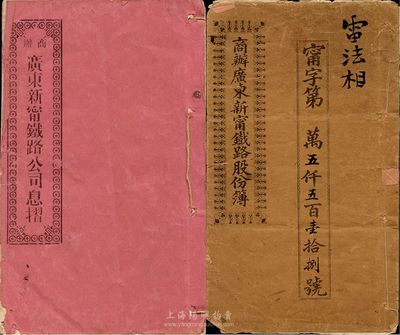 商辦
廣東新甯鐵路公司息摺
雷法相
甯字第 萬五仟五百壹拾捌號
商辦廣東新甯鐵路股份簿
上海阳明拍卖